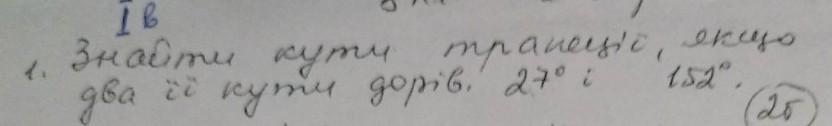 І в
1. Знайти кути трапеції, якщо
два її кути дорів. 27° і 152°.
(2б)